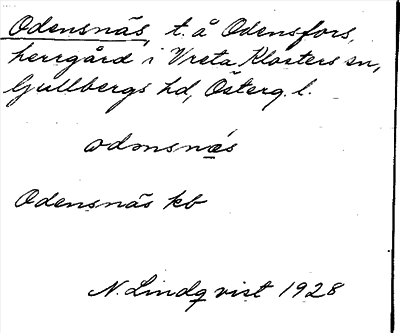 Odensnäs, t. å Odensfors,
herrgård i Vreta Klosters sn,
Gullbergs hd, Österg. l.
odənsnæs
Odensnäs kb
N. Lindqvist 1928